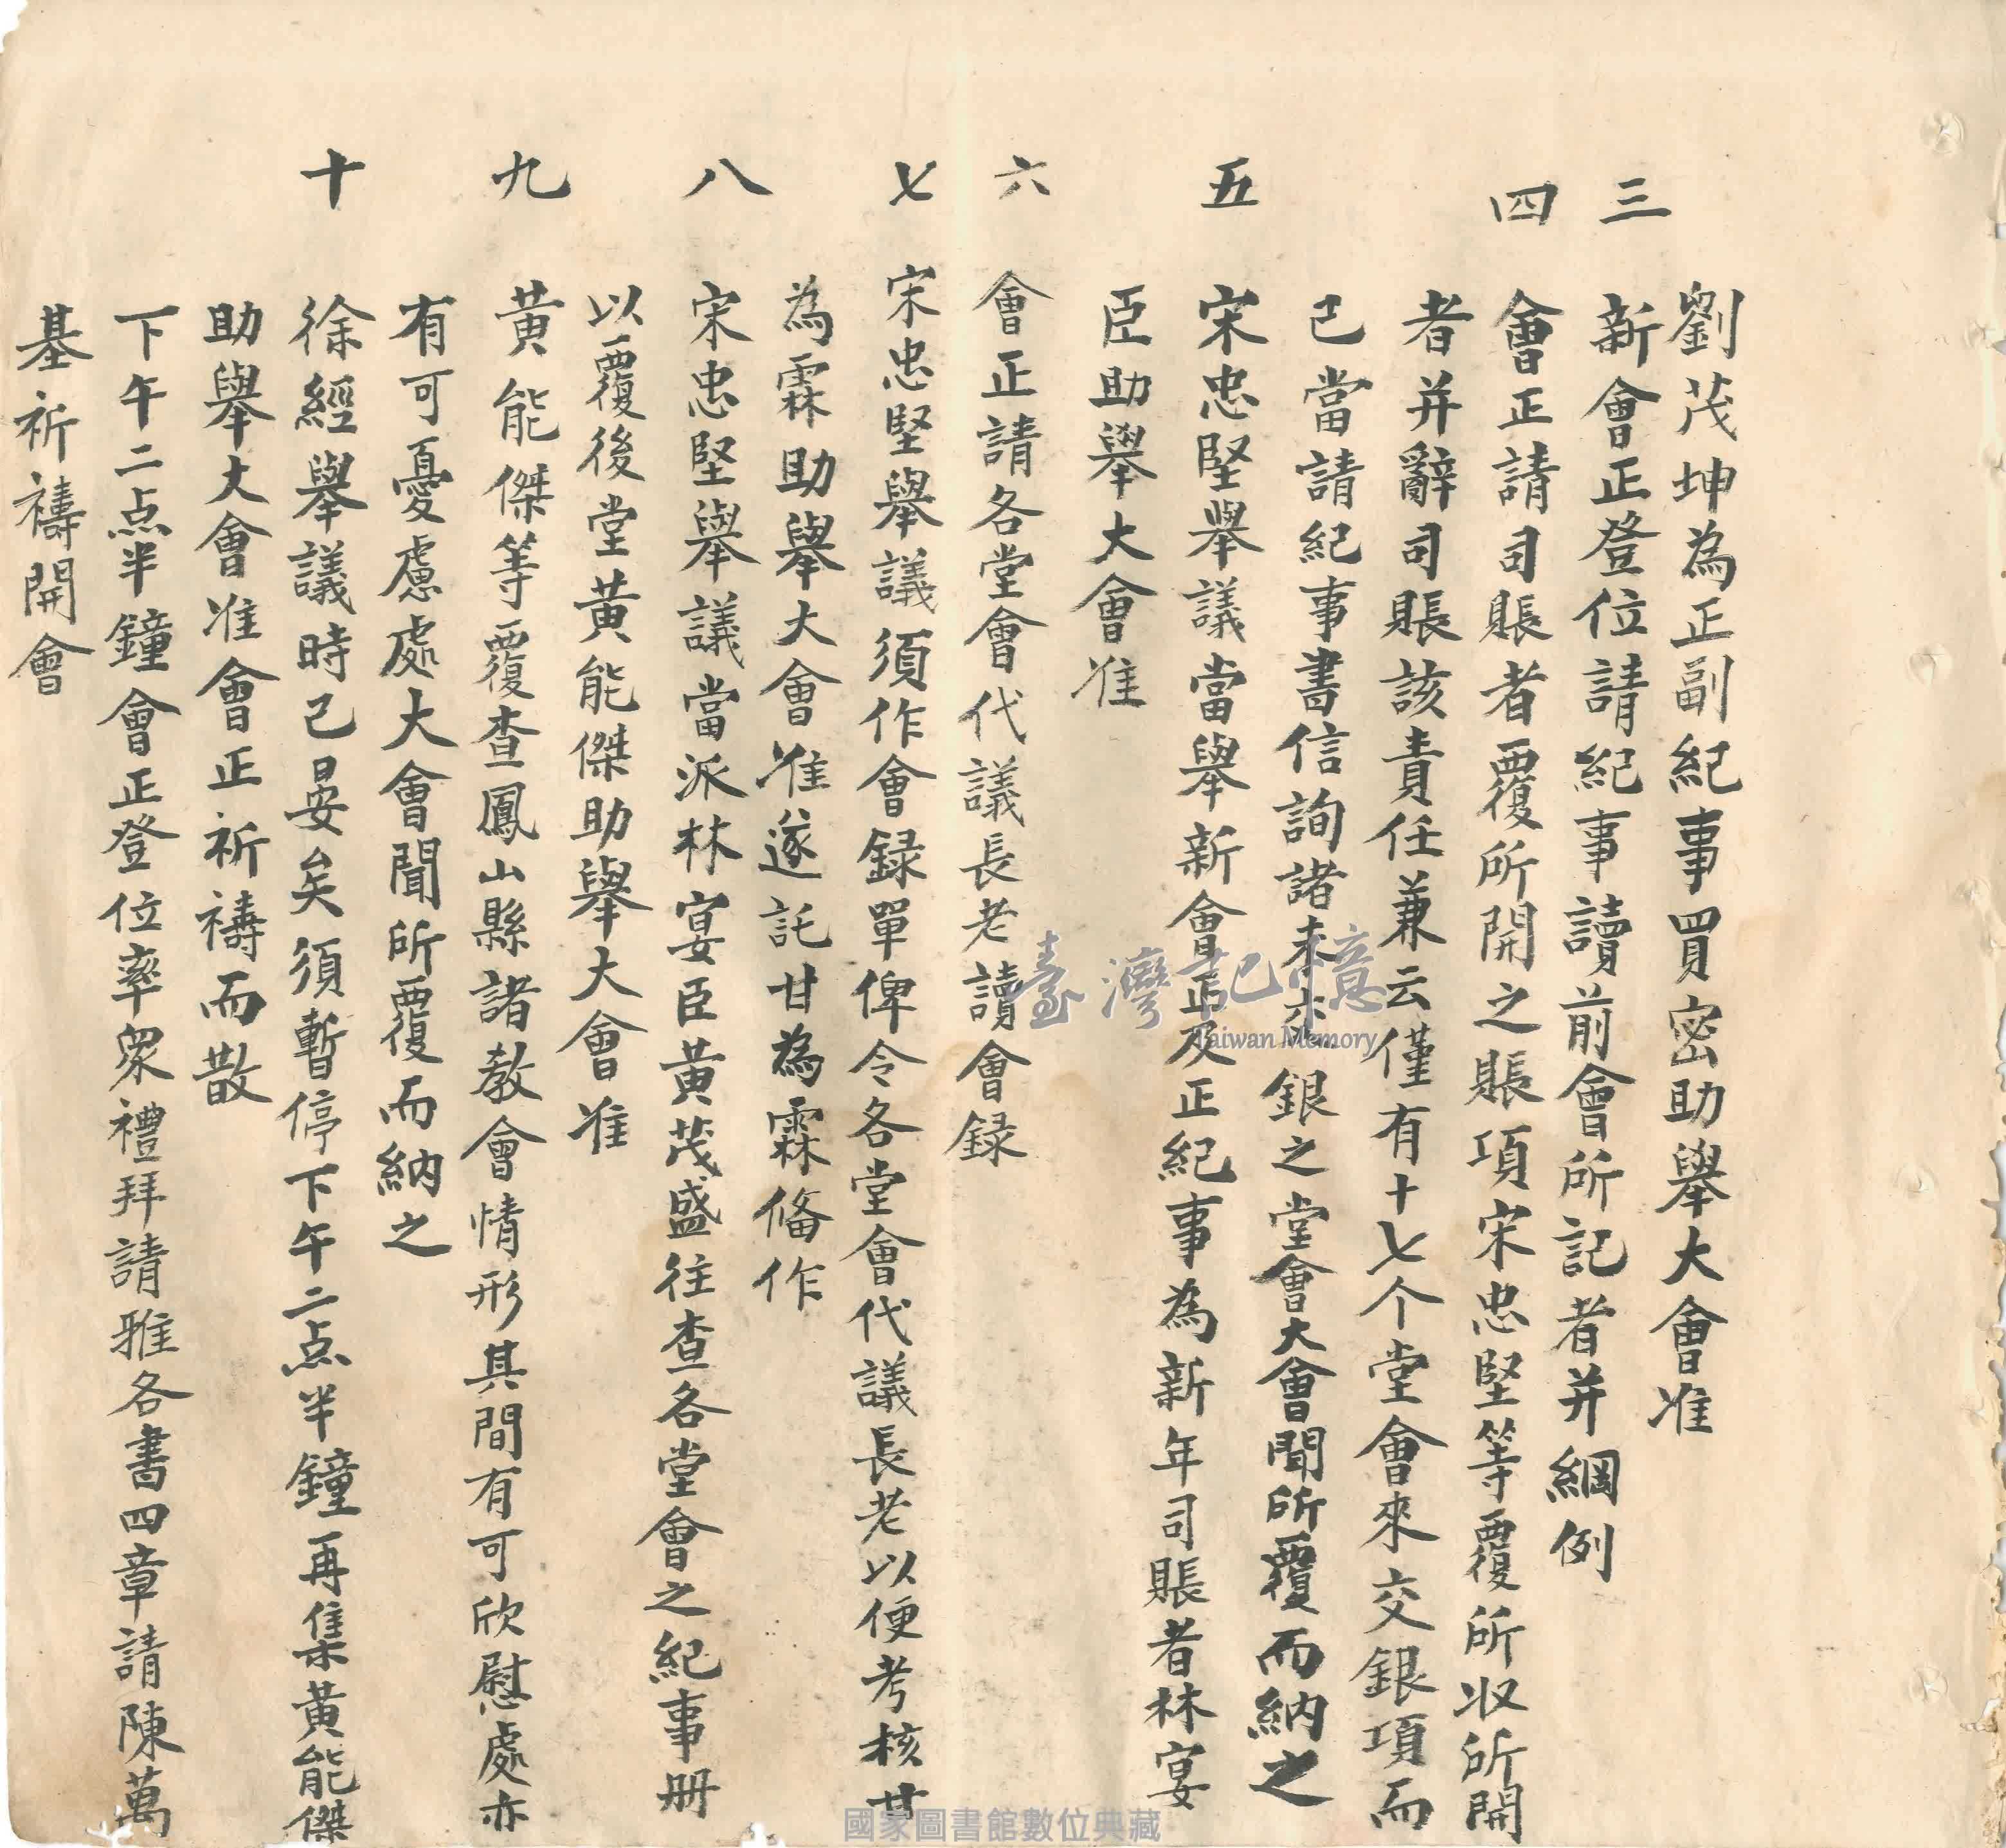 劉茂坤為正副紀事買密助舉大會准
三 新會正登位請紀事讀前會所記者并綱例
四 會正請司賬者覆所開之賬項宋忠堅等覆所收所開
者并辭司賬該責任兼云僅有十七个堂會來交銀項而
已當請紀事書信詢諸未來銀之堂會大會聞所覆而納之
五 宋忠堅舉議當舉新會正及正紀事為新年司賬者林宴
臣助舉大會准
六 會正請各堂會代議長老讀會録
七 宋忠堅舉議須作會録單俾令各堂會代議長老以便考核甘
為霖助舉大會准遂託甘為霖俻作
八 宋忠堅舉議當派林宴臣黃茂盛往查各堂會之紀事册
以覆後堂黃能傑助舉大會准
九 黃能傑等覆查鳳山縣諸教會情形其間有可欣慰處亦
有可憂慮處大會聞所覆而納之
十 徐經舉議時已晏矣須暫停下午二点半鐘再集黃能傑
助舉大會准會正祈禱而散
下午二点半鐘會正登位率眾禮拜請雅各書四章請陳萬
基祈禱開會
臺灣記憶
Taiwan Memory
國家圖書館數位典藏